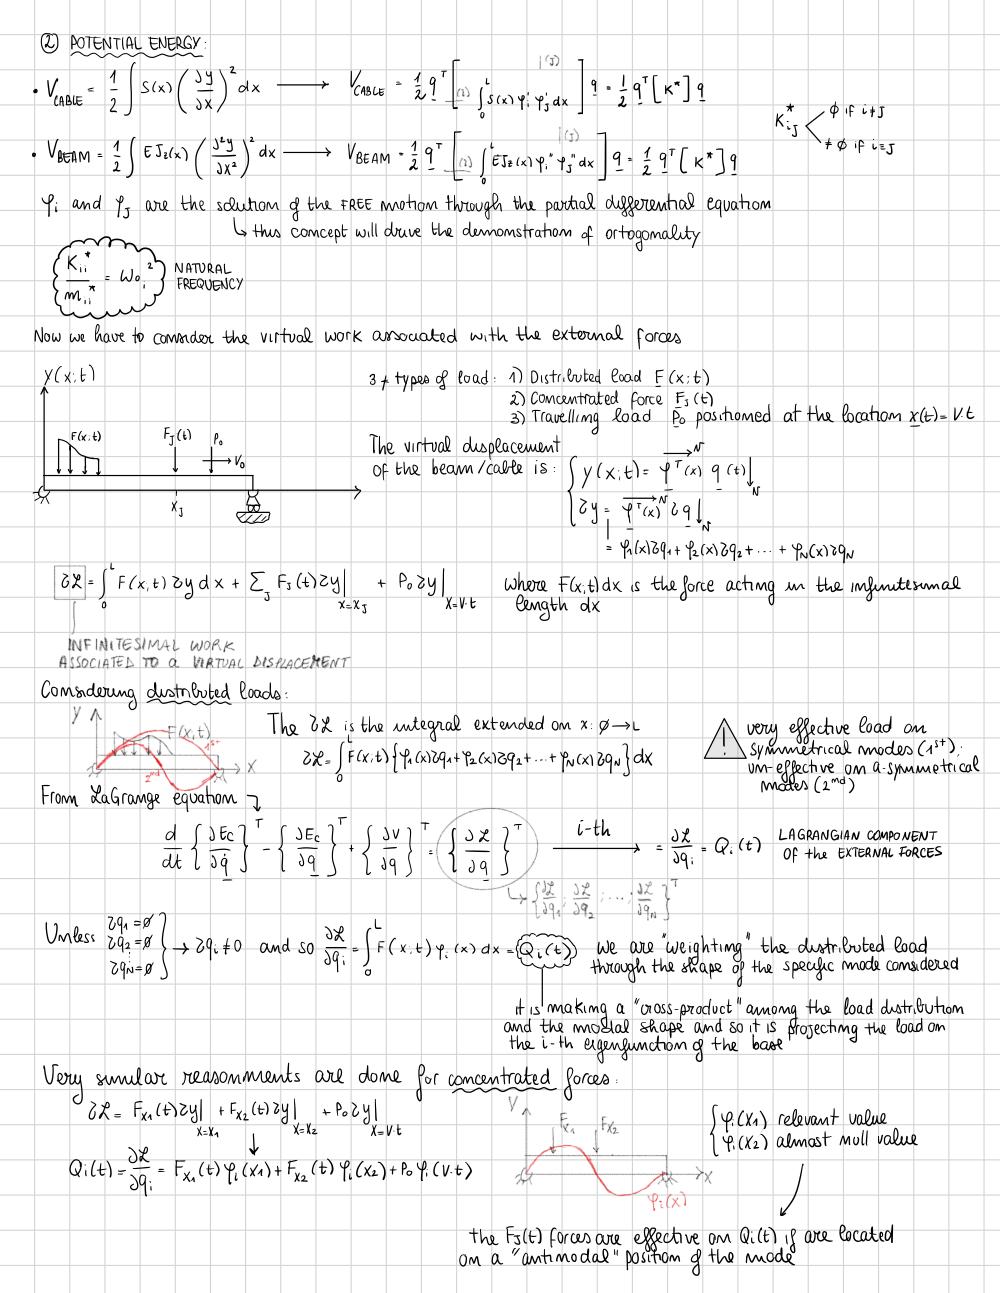 ② POTENTIAL ENERGY:
• V_CABLE = 1/2 ∫ S(x) (∂y/∂x)² dx ⟶ V_CABLE = 1/2 q^T [ (i) ∫₀^L S(x) φi' φj' dx ] q = 1/2 q^T [K*] q
|(J)
K*_iJ < ∅ if i≠J
≠ ∅ if i=J
• V_BEAM = 1/2 ∫ EJz(x) (∂²y/∂x²)² dx ⟶ V_BEAM = 1/2 q^T [ (i) ∫₀^L EJz(x) φi'' φJ'' dx ] q = 1/2 q^T [K*] q
|(J)
φi and φJ are the solution of the FREE motion through the partial differential equation
↳ this concept will drive the demonstration of ortogonality
Kii* / mii* = ω0i² NATURAL
FREQUENCY
Now we have to consider the virtual work associated with the external forces
y(x;t)
F(x;t) FJ(t) P0 V0
xJ
3 ≠ types of load: 1) Distributed load F(x;t)
2) Concentrated force FJ(t)
3) Travelling load P0 positioned at the location x(t)=V·t
The virtual displacement
of the beam/cable is:
y(x;t) = φ^T(x) q(t) N N
δy = φ^T(x) δq N N
= φ1(x)δq1 + φ2(x)δq2 + ... + φN(x)δqN
δℒ = ∫₀^L F(x,t) δy dx + ΣJ FJ(t) δy|x=xJ + P0 δy|x=V·t where F(x;t)dx is the force acting in the infinitesimal
length dx
INFINITESIMAL WORK
ASSOCIATED TO a VIRTUAL DISPLACEMENT
Considering distributed loads:
y F(x,t) 1st 2nd x
The δℒ is the integral extended on x: ∅→L
δℒ = ∫₀^L F(x;t) {φ1(x)δq1 + φ2(x)δq2 + ... + φN(x)δqN} dx
! very effective load on
symmetrical modes (1st);
un-effective on a-symmetrical
modes (2nd)
From LaGrange equation
d/dt {∂Ec/∂q̇}^T - {∂Ec/∂q}^T + {∂V/∂q}^T = {∂ℒ/∂q}^T ⟶ i-th = ∂ℒ/∂qi = Qi(t) LAGRANGIAN COMPONENT
OF the EXTERNAL FORCES
↳ {∂ℒ/∂q1 ; ∂ℒ/∂q2 ; ... ; ∂ℒ/∂qN}^T
Unless δq1=∅
δq2=∅
⋮
δqN=∅
→ δqi≠0 and so ∂ℒ/∂qi = ∫₀^L F(x;t) φi(x) dx = Qi(t) we are "weighting" the distributed load
through the shape of the specific mode considered
it is making a "cross-product" among the load distribution
and the modal shape and so it is projecting the load on
the i-th eigenfunction of the base
Very similar reasonments are done for concentrated forces:
δℒ = Fx1(t) δy|x=x1 + Fx2(t) δy|x=x2 + P0 δy|x=V·t
Qi(t) = ∂ℒ/∂qi = Fx1(t) φi(x1) + Fx2(t) φi(x2) + P0 φi(V·t)
y Fx1 Fx2 x
φi(x)
φi(x1) relevant value
φi(x2) almost null value
the FJ(t) forces are effective on Qi(t) if are located
on a "antimodal" position of the mode